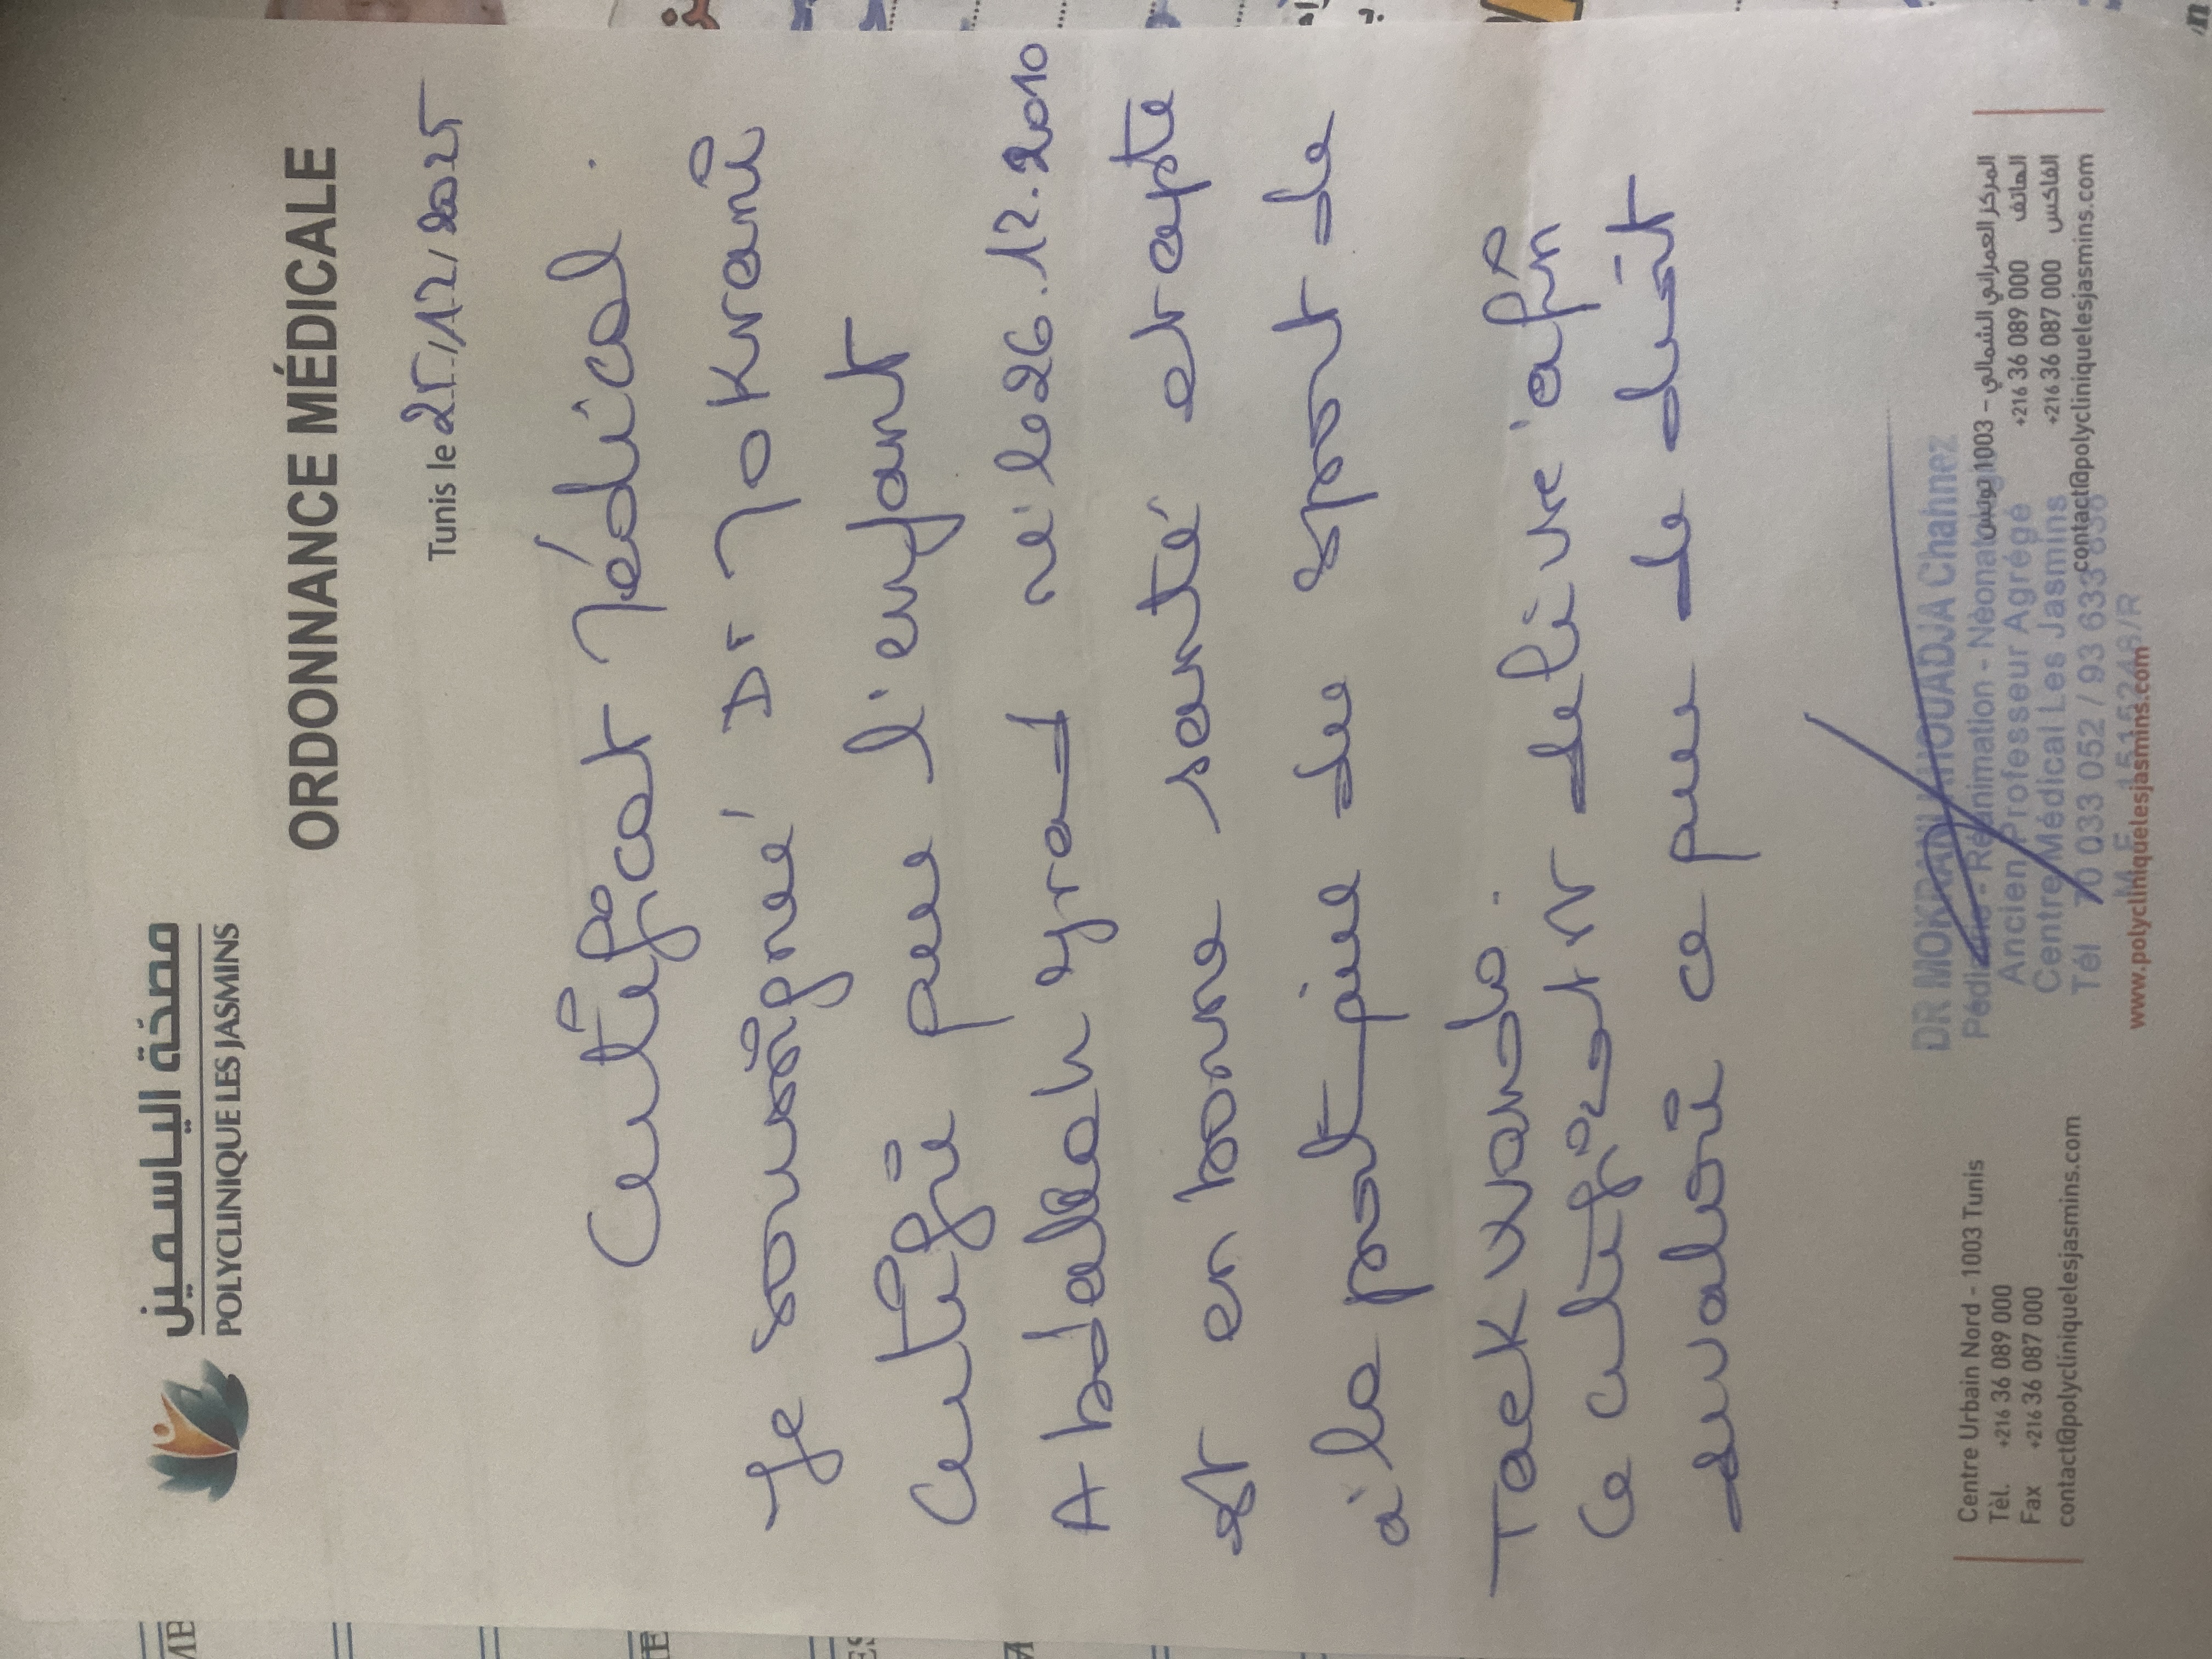 مصحة الياسمين
POLYCLINIQUE LES JASMINS
ORDONNANCE MÉDICALE
Tunis le 25/12/2025
Certificat Médical.
Je soussigné Dr Mokrani
Certifie que l'enfant
Abdellah Iyed né le 26.12.2010
est en bonne santé et apte
à la pratique du sport de
Taekwando.
Ce certificat est délivré afin
de servir valoir ce que de droit
DR MOKRANI HOUADJA Chahnez
Pédiatrie - Réanimation - Néonatologie
Ancien Professeur Agrégé
Centre Médical Les Jasmins
Tél 70 033 052 / 93 633
Centre Urbain Nord - 1003 Tunis
Tèl. +216 36 089 000
Fax +216 36 087 000
contact@polycliniquelesjasmins.com
www.polycliniquelesjasmins.com
المركز العمراني الشمالي – 1003 تونس
+216 36 089 000 الهاتف
+216 36 087 000 الفاكس
contact@polycliniquelesjasmins.com